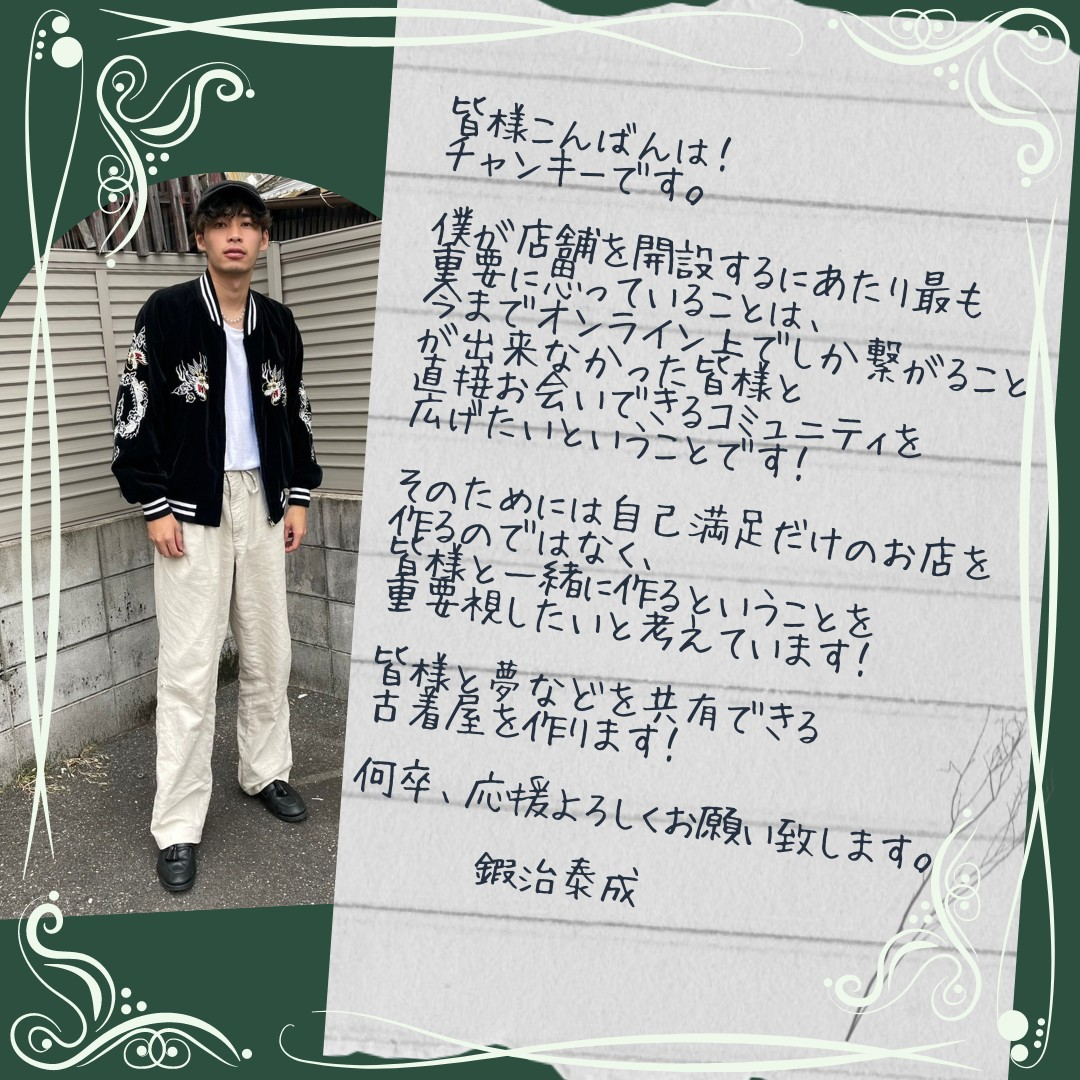 皆様こんばんは!
チャンキーです。
僕が店舗を開設するにあたり最も
重要に思っていることは、
今までオンライン上でしか繋がること
が出来なかった皆様と
直接お会いできるコミュニティを
広げたいということです!
そのためには自己満足だけのお店を
作るのではなく、
皆様と一緒に作るということを
重要視したいと考えています!
皆様と夢などを共有できる
古着屋を作ります!
何卒、応援よろしくお願い致します。
鍜治泰成